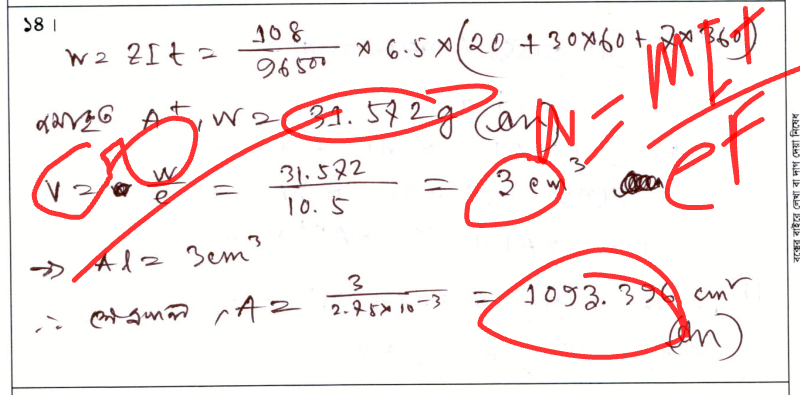 ১৪।
W = ZIt = 108/96500 × 6.5 × (20 + 30×60 + 2×360)
A⁺, W = 31.572g (An)
W = MIt/eF
V = W/e = 31.572/10.5 = 3 cm³
⇒ Al = 3cm³
∴ ক্ষেত্রফল, A = 3/2.75×10⁻³ = 1093.396 cm² (An)
বক্সের বাইরে লেখা বা দাগ দেয়া নিষেধ